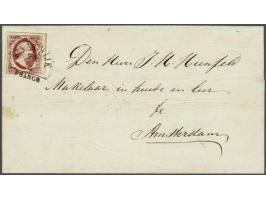 FRANCO
Den Heer J. H.
Makelaar in huide en leer
te
Amsterdam